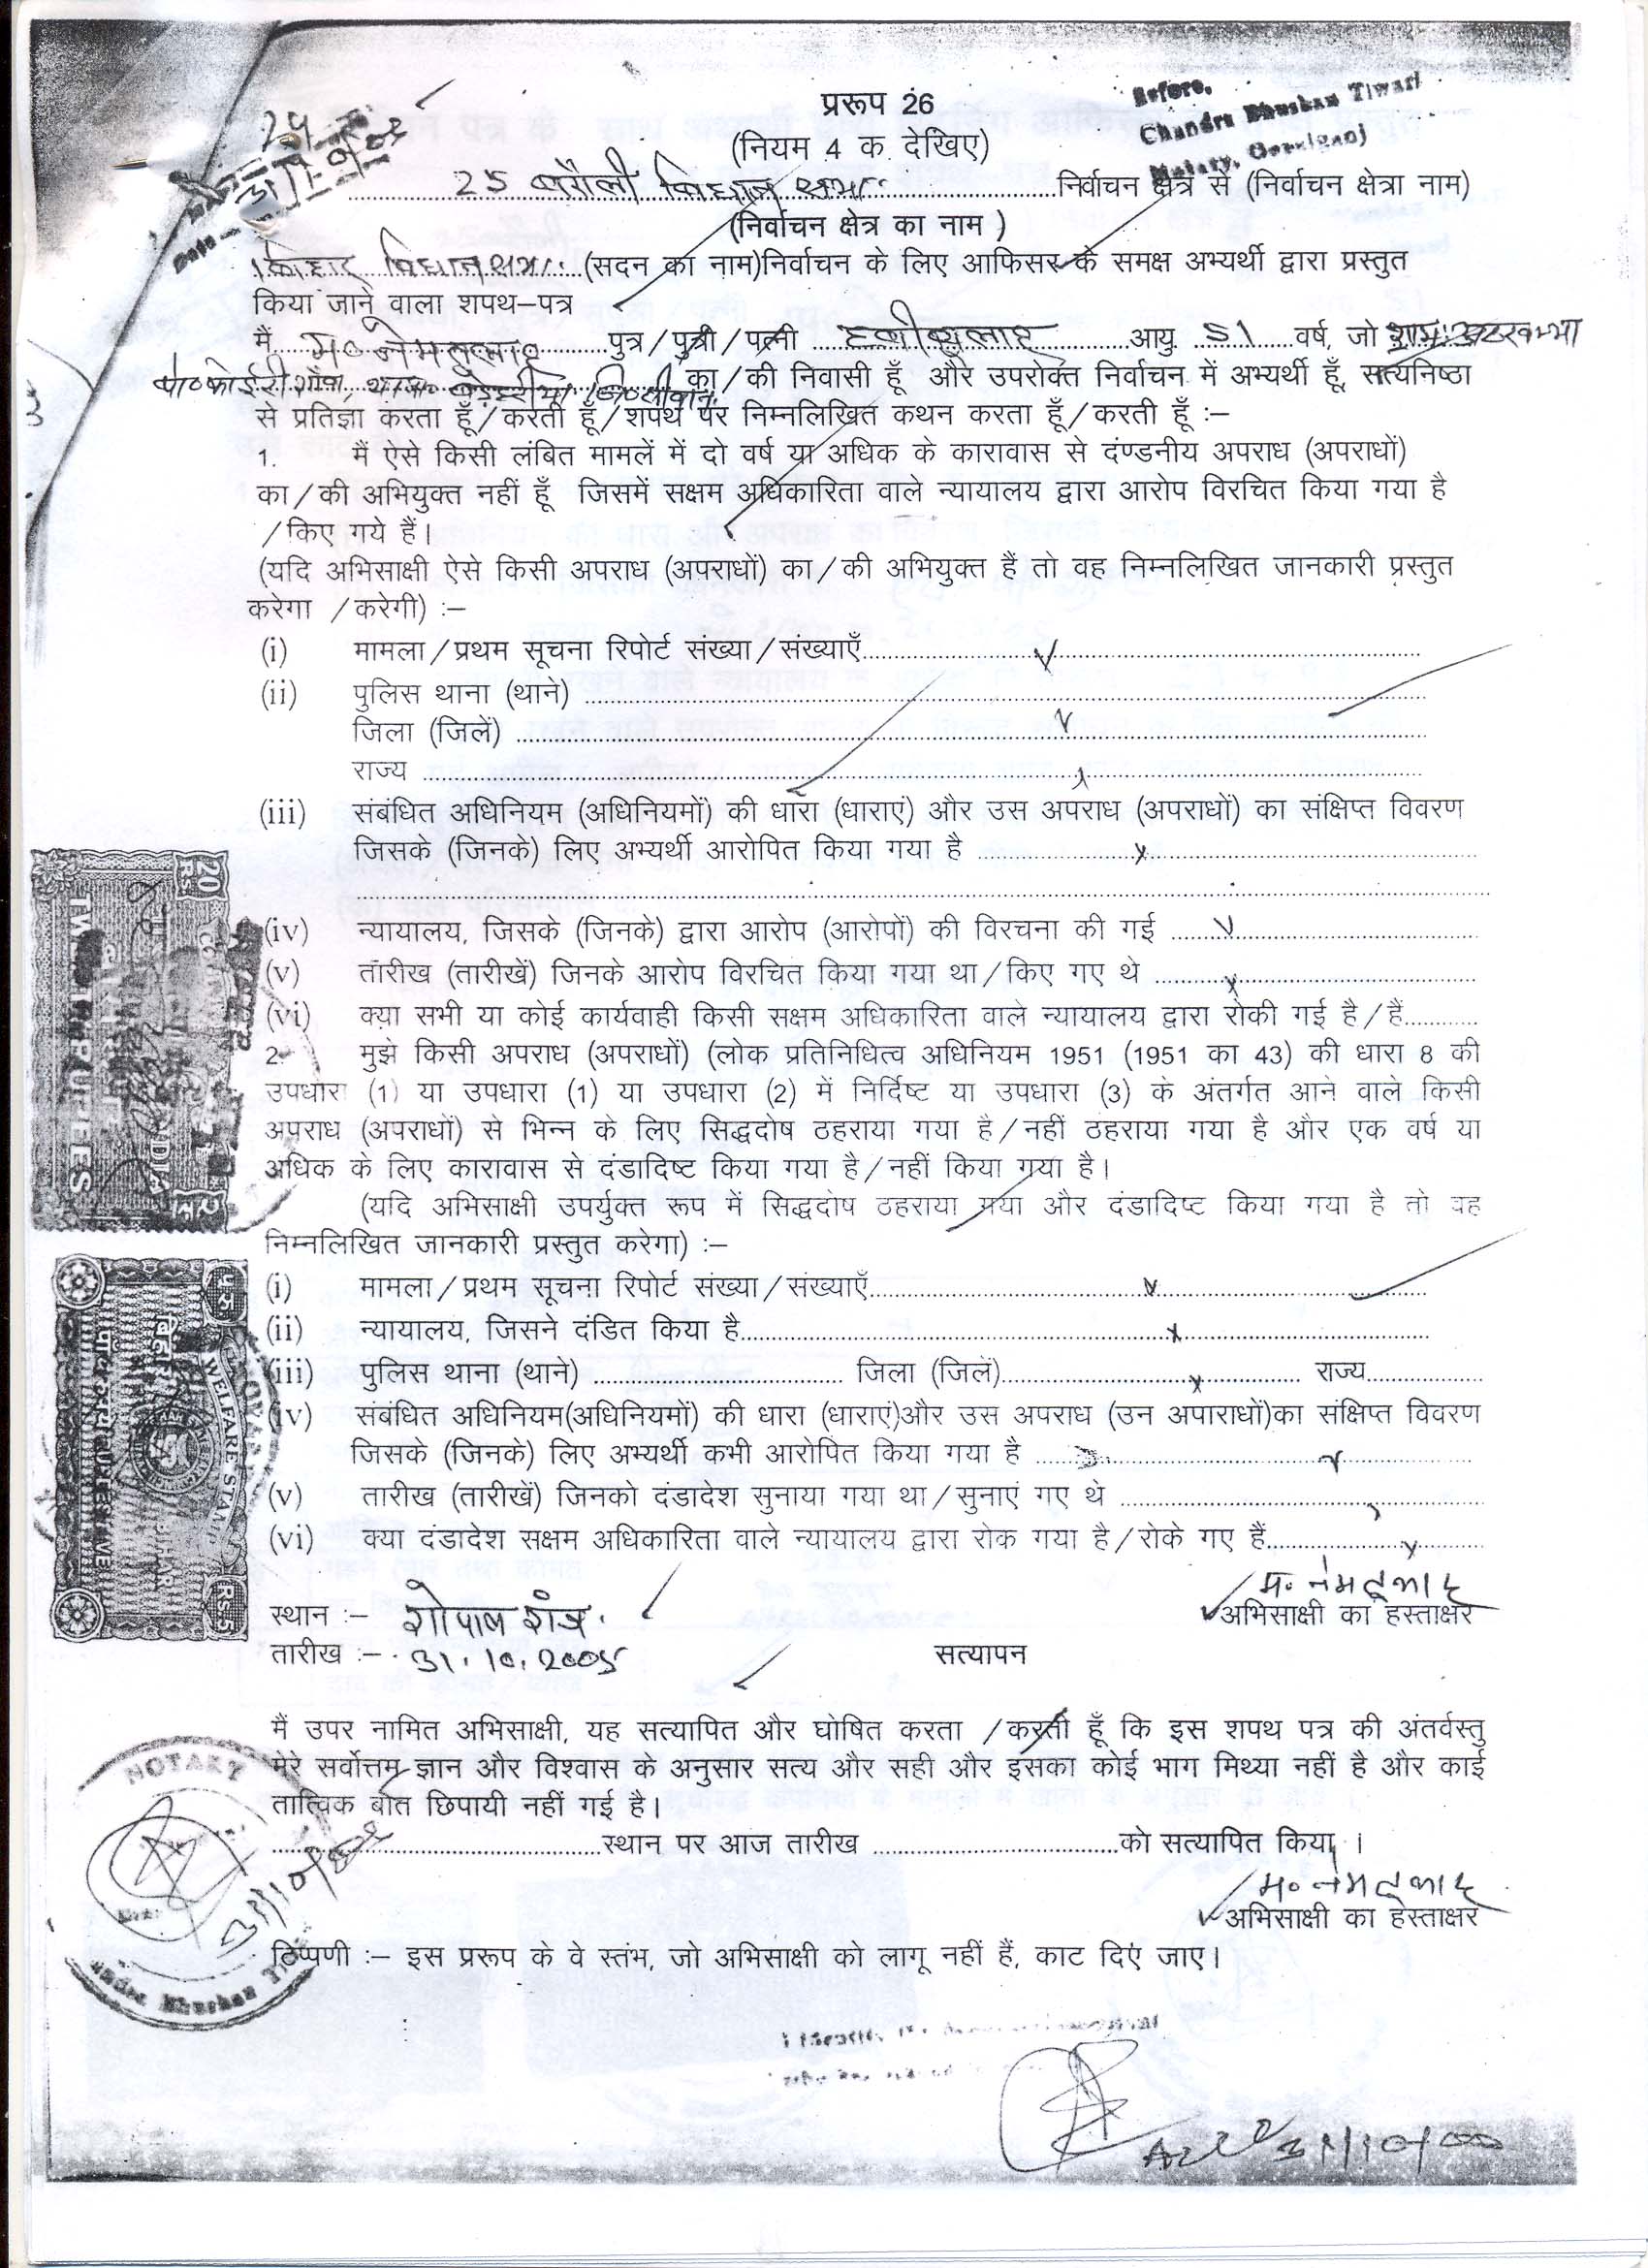 प्ररूप 26
Before,
Chandra Bhushan Tiwari
Notary, Gopalganj
(नियम 4 क देखिए)
25 बरौली विधान सभा निर्वाचन क्षेत्र से (निर्वाचन क्षेत्रा नाम)
(निर्वाचन क्षेत्र का नाम )
बिहार विधान सभा (सदन का नाम)निर्वाचन के लिए आफिसर के समक्ष अभ्यर्थी द्वारा प्रस्तुत
किया जाने वाला शपथ–पत्र
मैं मो० नेमतुलाह पुत्र/पुत्री/पत्नी आयु 51 वर्ष, जो ग्राम
का/की निवासी हूँ और उपरोक्त निर्वाचन में अभ्यर्थी हूँ, सत्यनिष्ठा
से प्रतिज्ञा करता हूँ/करती हूँ/शपथ पर निम्नलिखित कथन करता हूँ/करती हूँ :–
1. मैं ऐसे किसी लंबित मामलें में दो वर्ष या अधिक के कारावास से दंण्डनीय अपराध (अपराधों)
का/की अभियुक्त नहीं हूँ जिसमें सक्षम अधिकारिता वाले न्यायालय द्वारा आरोप विरचित किया गया है
/किए गये हैं।
(यदि अभिसाक्षी ऐसे किसी अपराध (अपराधों) का/की अभियुक्त हैं तो वह निम्नलिखित जानकारी प्रस्तुत
करेगा /करेगी) :–
(i) मामला/प्रथम सूचना रिपोर्ट संख्या/संख्याएँ
(ii) पुलिस थाना (थाने)
जिला (जिलें)
राज्य
(iii) संबंधित अधिनियम (अधिनियमों) की धारा (धाराएं) और उस अपराध (अपराधों) का संक्षिप्त विवरण
जिसके (जिनके) लिए अभ्यर्थी आरोपित किया गया है
(iv) न्यायालय, जिसके (जिनके) द्वारा आरोप (आरोपों) की विरचना की गई
(v) तारीख (तारीखें) जिनके आरोप विरचित किया गया था/किए गए थे
(vi) क्या सभी या कोई कार्यवाही किसी सक्षम अधिकारिता वाले न्यायालय द्वारा रोकी गई है/हैं
2 मुझे किसी अपराध (अपराधों) (लोक प्रतिनिधित्व अधिनियम 1951 (1951 का 43) की धारा 8 की
उपधारा (1) या उपधारा (1) या उपधारा (2) में निर्दिष्ट या उपधारा (3) के अंतर्गत आने वाले किसी
अपराध (अपराधों) से भिन्न के लिए सिद्धदोष ठहराया गया है/नहीं ठहराया गया है और एक वर्ष या
अधिक के लिए कारावास से दंडादिष्ट किया गया है/नहीं किया गया है।
(यदि अभिसाक्षी उपर्युक्त रूप में सिद्धदोष ठहराया गया और दंडादिष्ट किया गया है तो वह
निम्नलिखित जानकारी प्रस्तुत करेगा) :–
(i) मामला/प्रथम सूचना रिपोर्ट संख्या/संख्याएँ
(ii) न्यायालय, जिसने दंडित किया है
(iii) पुलिस थाना (थाने) जिला (जिलें) राज्य
(iv) संबंधित अधिनियम(अधिनियमों) की धारा (धाराएं)और उस अपराध (उन अपाराधों)का संक्षिप्त विवरण
जिसके (जिनके) लिए अभ्यर्थी कभी आरोपित किया गया है
(v) तारीख (तारीखें) जिनको दंडादेश सुनाया गया था/सुनाएं गए थे
(vi) क्या दंडादेश सक्षम अधिकारिता वाले न्यायालय द्वारा रोक गया है/रोके गए हैं
मो० नेमतुलाह
स्थान :– गोपालगंज
अभिसाक्षी का हस्ताक्षर
तारीख :– 31.10.2005
सत्यापन
मैं उपर नामित अभिसाक्षी, यह सत्यापित और घोषित करता /करती हूँ कि इस शपथ पत्र की अंतर्वस्तु
मेरे सर्वोत्तम ज्ञान और विश्वास के अनुसार सत्य और सही और इसका कोई भाग मिथ्या नहीं है और काई
तात्विक बात छिपायी नहीं गई है।
स्थान पर आज तारीख को सत्यापित किया ।
मो० नेमतुलाह
अभिसाक्षी का हस्ताक्षर
टिप्पणी :– इस प्ररूप के वे स्तंभ, जो अभिसाक्षी को लागू नहीं हैं, काट दिए जाए।
NOTARY
20 RS
RUPEES
INDIA
WELFARE STAMP
RS.5